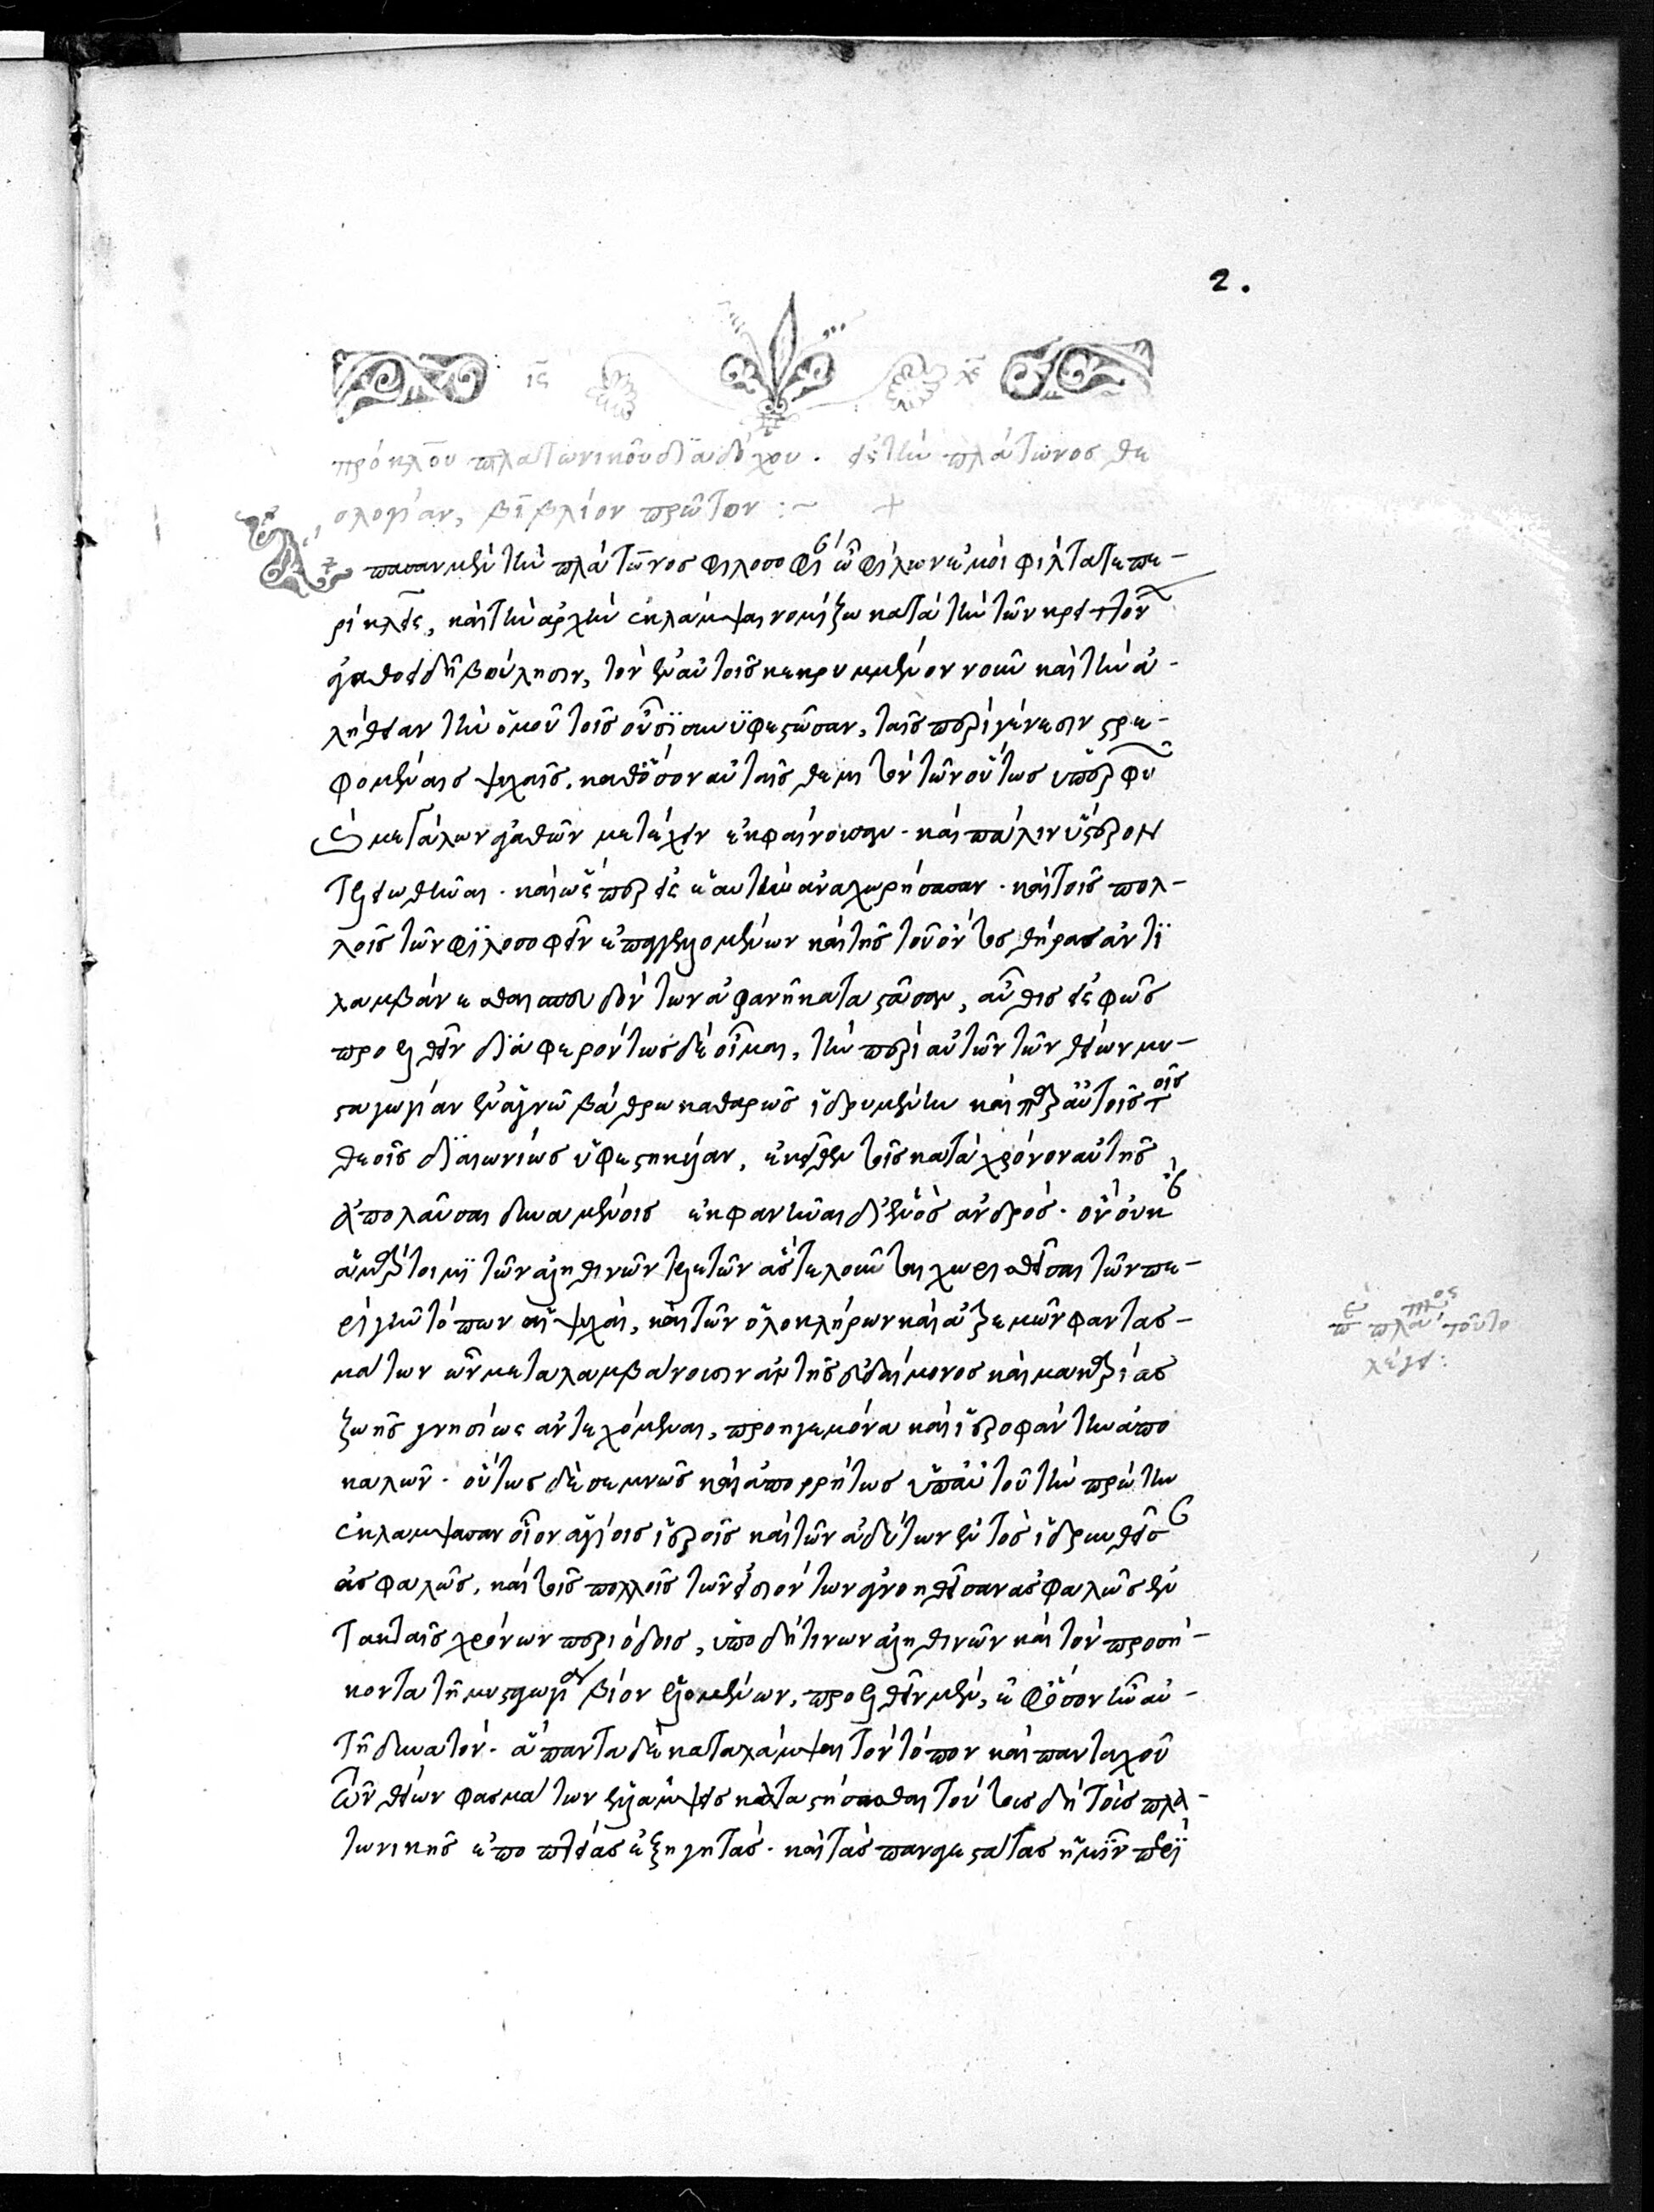 2.
ις χς
πρόκλου πλατωνικοῦ διαδόχου. εἰς τὴν πλάτωνος θε
ολογίαν, βιβλίον πρῶτον :~ +
Ἅπασαν μὲν τὴν πλάτωνος φιλοσοφίαν ὦ φίλων ἐμοὶ φίλτατε πε-
ρίκλεις, καὶ τὴν ἀρχὴν ἐκλάμψαι νομίζω κατὰ τὴν τῶν κρειττόνων
ἀγαθοειδῆ βούλησιν, τὸν ἐν αὐτοῖς κεκρυμμένον νοῦν καὶ τὴν ἀ-
λήθειαν τὴν ὁμοῦ τοῖς οὖσι συνυφεστῶσαν, ταῖς περὶ γένεσιν στρε-
φομέναις ψυχαῖς. καθόσον αὐταῖς θεμιτὸν τῶν οὕτως ὑπερφυῶν
καὶ μεγάλων ἀγαθῶν μετέχειν ἐκφαίνουσαν. καὶ πάλιν ὕστερον
τελειωθῆναι. καὶ ὥσπερ εἰς ἑαυτὴν ἀναχωρήσασαν. καὶ τοῖς πολ-
λοῖς τῶν φιλοσοφεῖν ἐπαγγελλομένων καὶ τῆς τοῦ ὄντος θήρας ἀντι
λαμβάνεσθαι σπευδόντων ἀφανῆ καταστᾶσαν, αὖθις εἰς φῶς
προελθεῖν διαφερόντως δὲ οἶμαι, τὴν περὶ αὐτῶν τῶν θείων μυ-
σταγωγίαν ἐν ἁγνῷ βάθρῳ καθαρῶς ἱδρυμένην καὶ παρ' αὐτοῖς τοῖς
θεοῖς διαιωνίως ὑφεστηκυῖαν, ἐκεῖθεν τοῖς κατὰ χρόνον αὐτῆς
ἀπολαῦσαι δυναμένοις ἐκφανῆναι δι' ἑνὸς ἀνδρός. ὃν οὐκ
ἂν ἁμάρτοιμι τῶν ἀληθινῶν τελετῶν ἃς τελοῦνται χωρισθεῖσαι τῶν πε-
ρὶ γῆν τόπων αἱ ψυχαὶ, καὶ τῶν ὁλοκλήρων καὶ ἀτρεμῶν φαντασ-
μάτων ὧν μεταλαμβάνουσιν αἱ τῆς εὐδαίμονος καὶ μακαρίας
ζωῆς γνησίως ἀντεχόμεναι, προηγεμόνα καὶ ἱεροφάντην ἀπο
καλῶν. οὕτως δὲ σεμνῶς καὶ ἀπορρήτως ὑπ' αὐτοῦ τὴν πρώτην
ἐκλάμψασαν οἷον ἁγίοις ἱεροῖς καὶ τῶν ἀδύτων ἐντὸς ἱδρυνθεῖσαν
ἀσφαλῶς, καὶ τοῖς πολλοῖς τῶν εἰσιόντων ἀγνοηθεῖσαν ἀσφαλῶς ἐν
τακταῖς χρόνων περιόδοις, ὑπὸ δή τινων ἀληθινῶν καὶ τὸν προσή-
κοντα τῇ μυσταγωγίᾳ βίον ἑλομένων, προελθεῖν μὲν, ἐφ' ὅσον ἦν αὐ-
τῇ δυνατόν. ἅπαντα δὲ καταλάμψαι τὸν τόπον καὶ πανταχοῦ
τῶν θείων φασμάτων ἐλλάμψεις καταστήσασθαι τούτοις δὴ τοὺς πλα-
τωνικῆς ἐποπτείας ἐξηγητάς. καὶ τὰς παναγεστάτας ἡμῖν περὶ
πλάτωνος τοῦτο
λέγει: